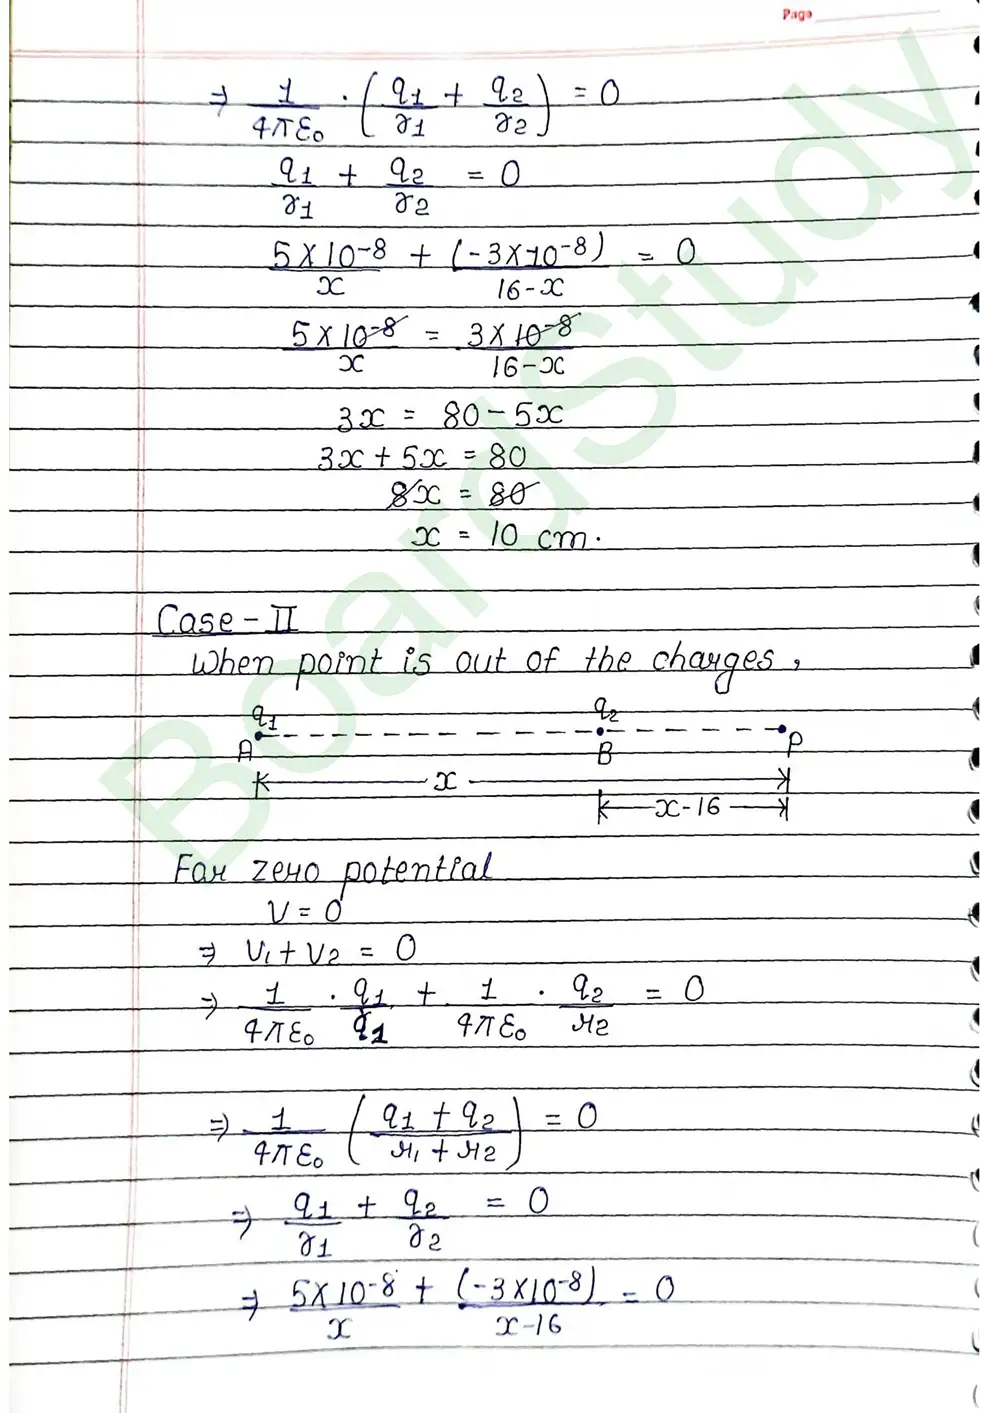 Page
⇒ 1/4πε₀ · (q1/r1 + q2/r2) = 0
q1/r1 + q2/r2 = 0
5×10⁻⁸/x + (-3×10⁻⁸)/16-x = 0
5×10⁻⁸/x = 3×10⁻⁸/16-x
3x = 80-5x
3x + 5x = 80
8x = 80
x = 10 cm.
Case-II
When point is out of the charges,
q1 q2
A B P
x
x-16
For zero potential
V = 0
⇒ V1 + V2 = 0
⇒ 1/4πε₀ · q1/r1 + 1/4πε₀ · q2/r2 = 0
⇒ 1/4πε₀ (q1 + q2/r1 + r2) = 0
⇒ q1/r1 + q2/r2 = 0
⇒ 5×10⁻⁸/x + (-3×10⁻⁸)/x-16 = 0
BoardStudy